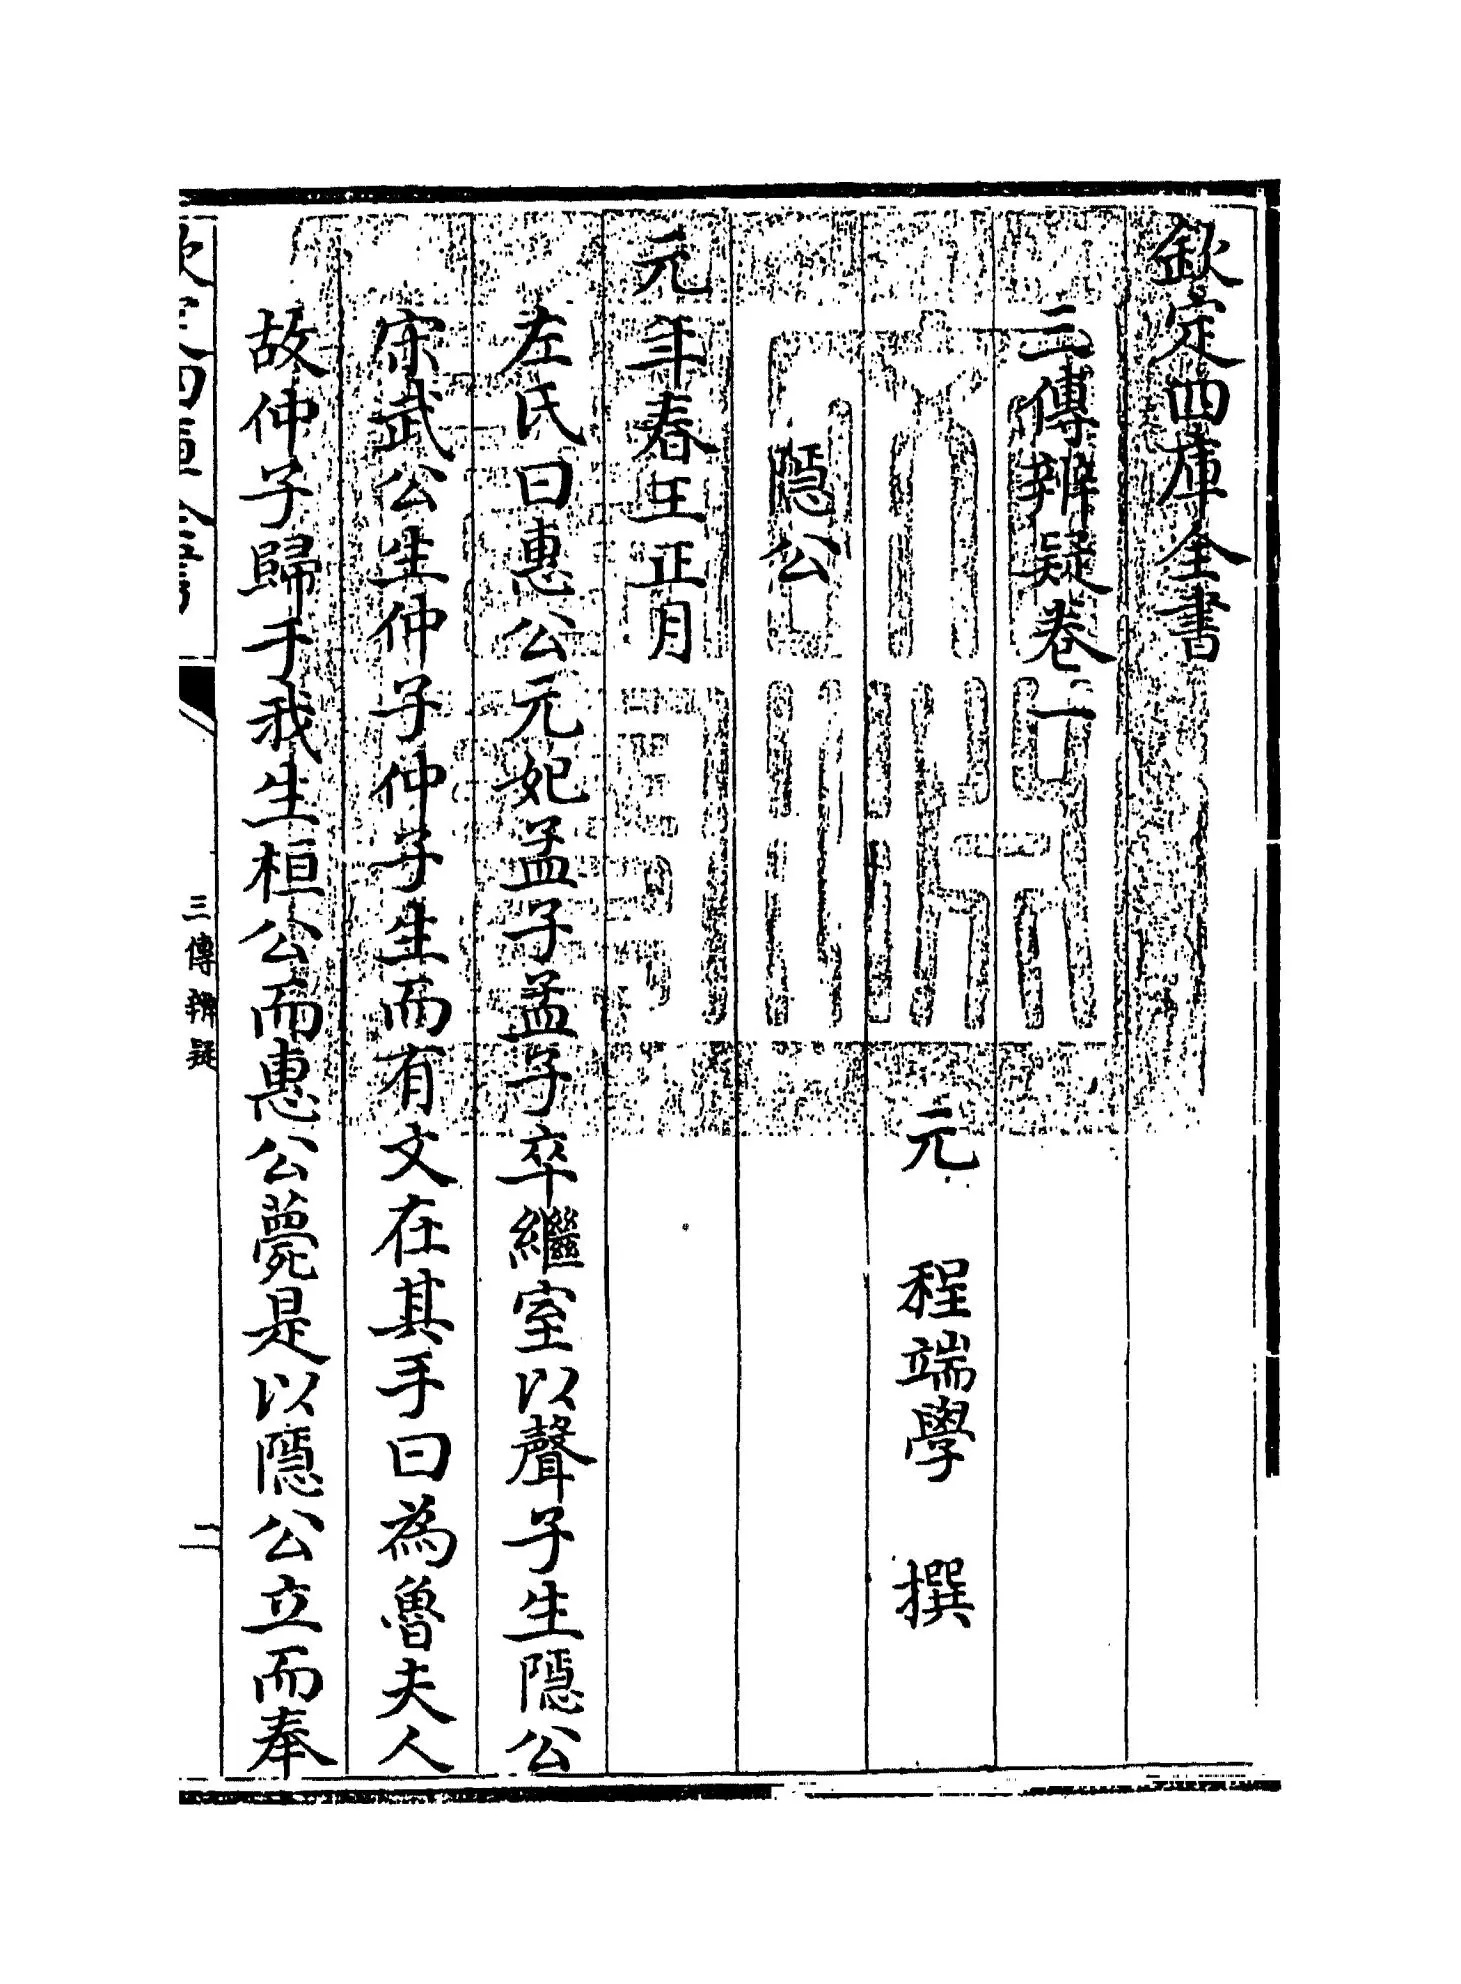 欽定四庫全書
三傳辨疑卷一
元 程端學 撰
隱公
元年春王正月
左氏曰惠公元妃孟子孟子卒繼室以聲子生隱公
宋武公生仲子仲子生而有文在其手曰為魯夫人
故仲子歸于我生桓公而惠公薨是以隱公立而奉
三傳辨疑